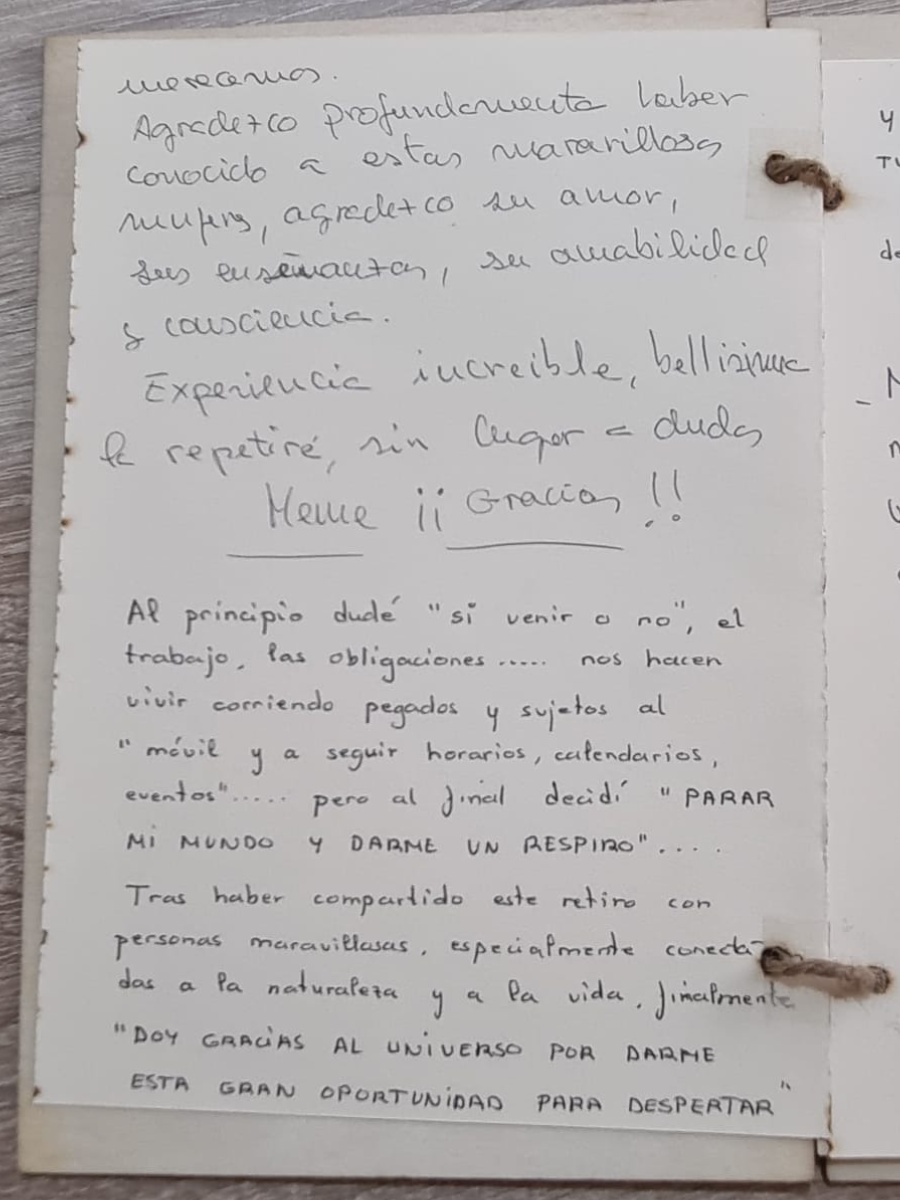 merecemos.
Agradezco profundamente haber
conocido a estas maravillosas
mujeres, agradezco su amor,
sus enseñanzas, su amabilidad
y consciencia.
Experiencia increible, bellisima
la repetiré, sin lugar a dudas
Meme ¡¡ Gracias !!
Al principio dudé "si venir o no", el
trabajo, las obligaciones ..... nos hacen
vivir corriendo pegados y sujetos al
"móvil y a seguir horarios, calendarios,
eventos"..... pero al final decidí "PARAR
Mi MUNDO Y DARME UN RESPIRO"....
Tras haber compartido este retiro con
personas maravillasas, especialmente conecta-
das a la naturaleza y a la vida, finalmente
"DOY GRACIAS AL UNIVERSO POR DARME
ESTA GRAN OPORTUNIDAD PARA DESPERTAR"
y